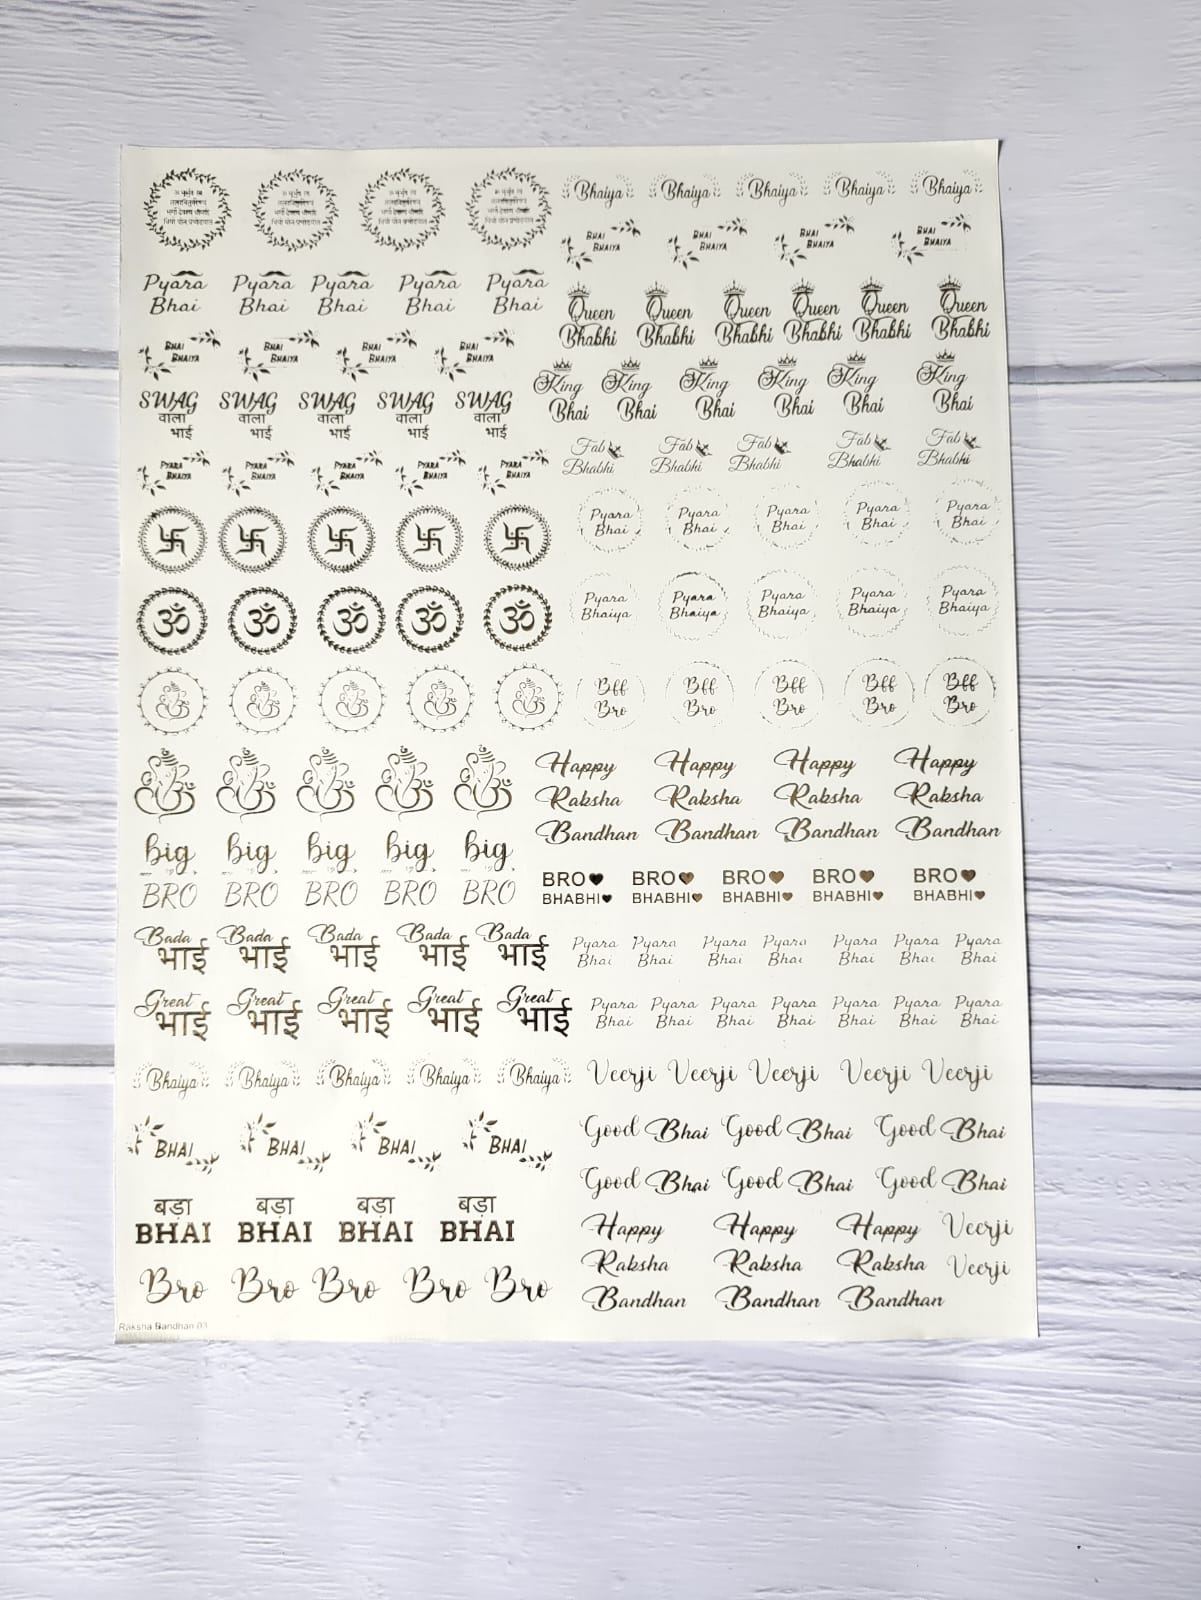 Pyara Pyara Pyara Pyara Pyara
Bhai Bhai Bhai Bhai Bhai
BHAI BHAI BHAI BHAI
BHAIYA BHAIYA BHAIYA BHAIYA
SWAG SWAG SWAG SWAG SWAG
वाला वाला वाला वाला वाला
भाई भाई भाई भाई भाई
PYARA PYARA PYARA PYARA PYARA
BHAIYA BHAIYA BHAIYA BHAIYA BHAIYA
ॐ ॐ ॐ ॐ ॐ
big big big big big
BRO BRO BRO BRO BRO
Bada Bada Bada Bada Bada
भाई भाई भाई भाई भाई
Great Great Great Great Great
भाई भाई भाई भाई भाई
Bhaiya Bhaiya Bhaiya Bhaiya Bhaiya
BHAI BHAI BHAI BHAI
बड़ा बड़ा बड़ा बड़ा
BHAI BHAI BHAI BHAI
Bro Bro Bro Bro Bro
Raksha Bandhan 03
Bhaiya Bhaiya Bhaiya Bhaiya Bhaiya
BHAI BHAI BHAI BHAI
BHAIYA BHAIYA BHAIYA BHAIYA
Queen Queen Queen Queen Queen Queen
Bhabhi Bhabhi Bhabhi Bhabhi Bhabhi Bhabhi
King King King King King King
Bhai Bhai Bhai Bhai Bhai Bhai
Fab Fab Fab Fab Fab
Bhabhi Bhabhi Bhabhi Bhabhi Bhabhi
Pyara Pyara Pyara Pyara Pyara
Bhai Bhai Bhai Bhai Bhai
Pyara Pyara Pyara Pyara Pyara
Bhaiya Bhaiya Bhaiya Bhaiya Bhaiya
Bff Bff Bff Bff Bff
Bro Bro Bro Bro Bro
Happy Happy Happy Happy
Raksha Raksha Raksha Raksha
Bandhan Bandhan Bandhan Bandhan
BRO BRO BRO BRO BRO
BHABHI BHABHI BHABHI BHABHI BHABHI
Pyara Pyara Pyara Pyara Pyara Pyara Pyara
Bhai Bhai Bhai Bhai Bhai Bhai Bhai
Pyara Pyara Pyara Pyara Pyara Pyara Pyara
Bhai Bhai Bhai Bhai Bhai Bhai Bhai
Veerji Veerji Veerji Veerji Veerji
Good Bhai Good Bhai Good Bhai
Good Bhai Good Bhai Good Bhai
Happy Happy Happy Veerji
Raksha Raksha Raksha Veerji
Bandhan Bandhan Bandhan